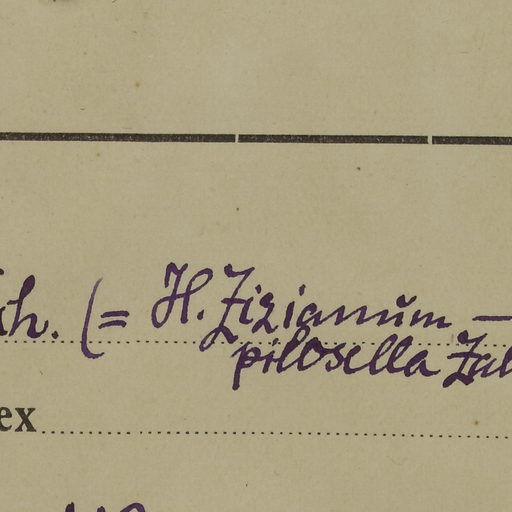 kh. (= H. Zizianum —
pilosella Zah
ex